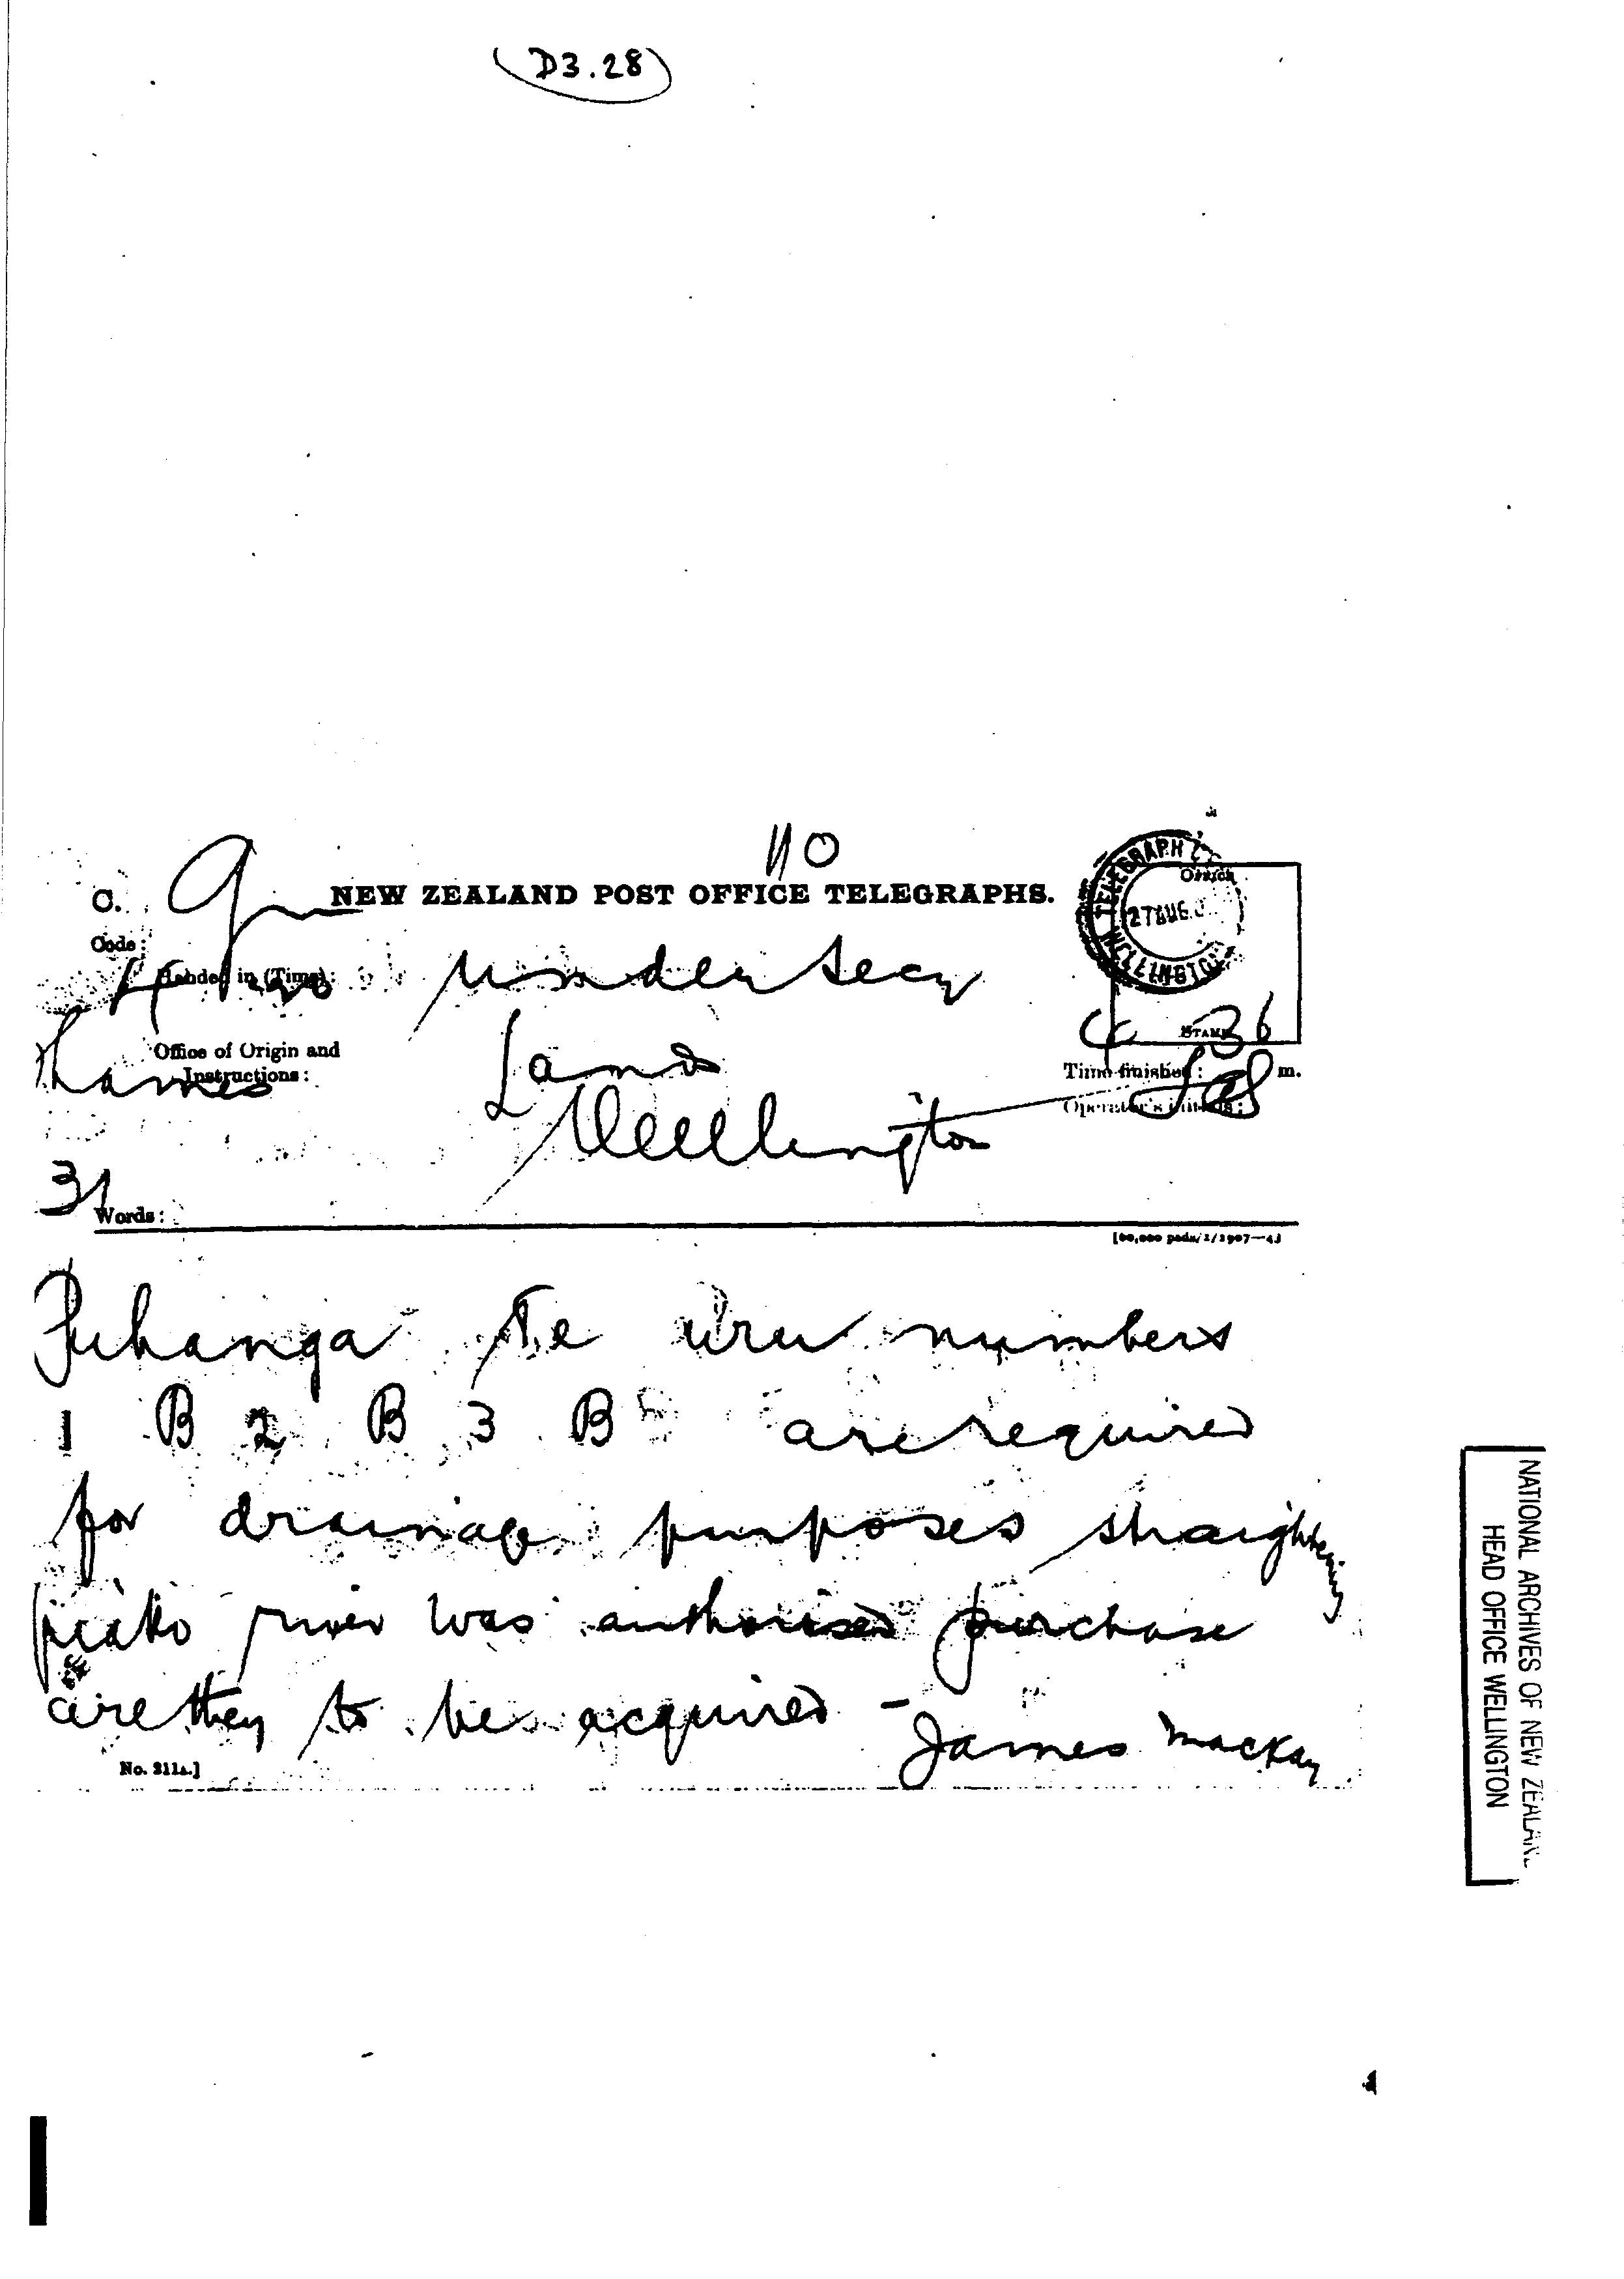 D3.28
110
O.
NEW ZEALAND POST OFFICE TELEGRAPHS.
TELEGRAPH
OFFICE
27 AUG
WELLINGTON
Code:
Handed in (Time):
Under Secy
STAMP
4 36
Thames
Office of Origin and
Instructions:
Land
Time finished: m.
Operator's initials:
Wellington
31
Words:
[60,000 pads/1/1907—4]
Puhanga Te uru numbers
1 B 2 B 3 B are required
for drainage purposes straightening
piako river was authorised purchase
are they to be acquired -
James Mackay
No. 211A.]
NATIONAL ARCHIVES OF NEW ZEALAND
HEAD OFFICE WELLINGTON